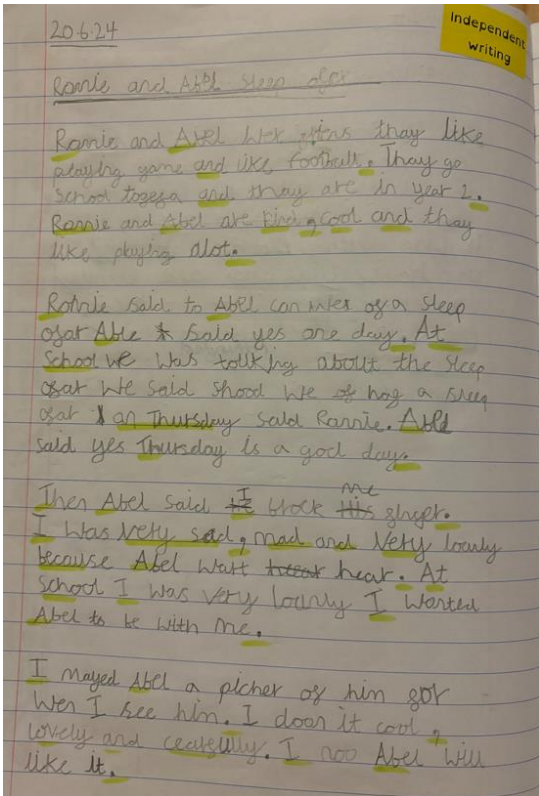 20.6.24
Independent
writing
Ronnie and Abel Sleep ofor
Ronnie and Abel wer frens thay like
playing game and like football. Thay go
School togesa and thay are in year 2.
Ronnie and Abel are kind, cool and thay
like playing alot.
Ronnie said to Abel can of a sleep
ofar Able said yes one day. At
School we was talking about the sleep
ofar we said shood we hag a sleep
ofar on Thursday said Ronnie. Abel
said yes Thursday is a god day.
Then Abel said I brock me ginger.
I was very sad, mad and very lounly
because Abel wast hear. At
school I was very lounly I wanted
Abel to be with me.
I mayed Abel a picher of him for
wen I see him. I doan it cool,
lovely and cearfully. I noo Abel will
like it.